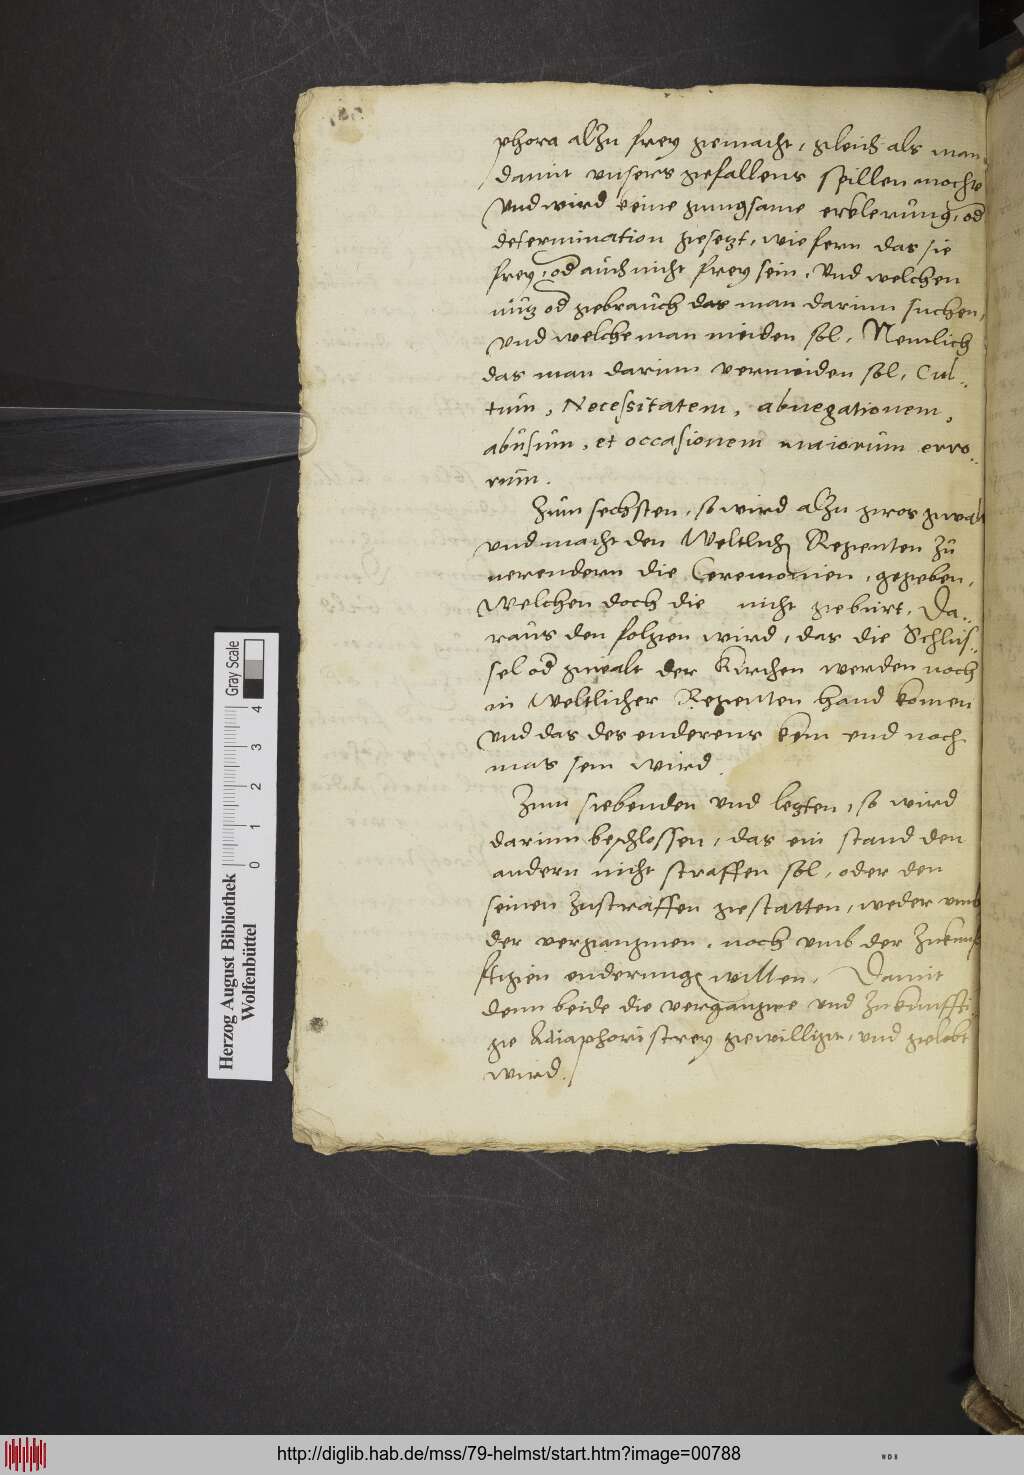 phora alzu frey gemacht, gleich als man
damit unsers gefallens spillen mocht
Und wird keine gnugsame erklerung, od
determination gesetzt, wie fern das sie
frey, od auch nicht frey sein, Und welchen
nutz od gebrauch das man darinn suchen,
und welche man meiden sol, Nemlich
das man darinn vermeiden sol, Cul-
tum, Necessitatem, abnegationem,
abusum, et occasionem maiorum erro-
rum.
Zum sechsten, so wird alzu gros gwalt
und macht den Weltlich Regenten zu
verendern die Ceremonien, gegeben,
Welchen doch die nicht geburt, Da-
raus den folgen wird, das die Schlus-
sel od gwalt der Kirchen werden noch
in Weltlicher Regenten hand komen
und das des enderens kein end noch
mas sein wird.
Zum siebenden und letzten, so wird
darinn beschlossen, das ein stand den
andern nicht straffen sol, oder den
seinen zustraffen gestatten, weder umb
der vergangnen, noch umb der zukunf
ftigen enderung willen, Damit
denn beide die vergangne und zukunffti
ge Adiaphoristrey gewilligt, und gelobt
wird.
Gray Scale
0 1 2 3 4
Herzog August Bibliothek
Wolfenbüttel
http://diglib.hab.de/mss/79-helmst/start.htm?image=00788